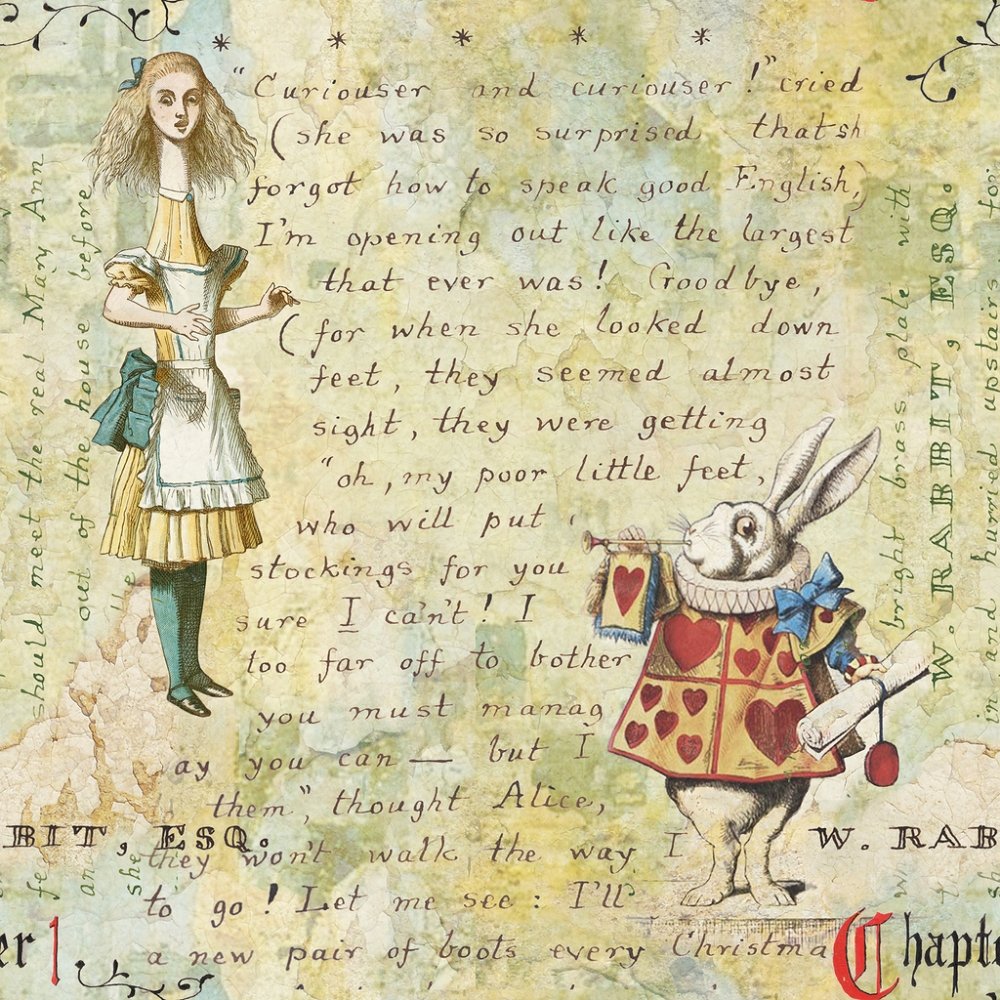 * * * * *
"Curiouser and curiouser!" cried
(she was so surprised that sh
forgot how to speak good English,)
I'm opening out like the largest
that ever was! Goodbye,
(for when she looked down
feet, they seemed almost
sight, they were getting
"oh, my poor little feet,
who will put
stockings for you
sure I can't! I
too far off to bother
you must manag
ay you can — but I
them", thought Alice,
they won't walk the way I
to go! Let me see: I'll
a new pair of boots every Christma
should meet the real Mary Ann
out of the house before
bright brass plate with
W. RABBIT, ESQ.
in and hurried upstairs, for
BIT, ESQ.
W. RAB
fe
an
she
er 1.
Chapte